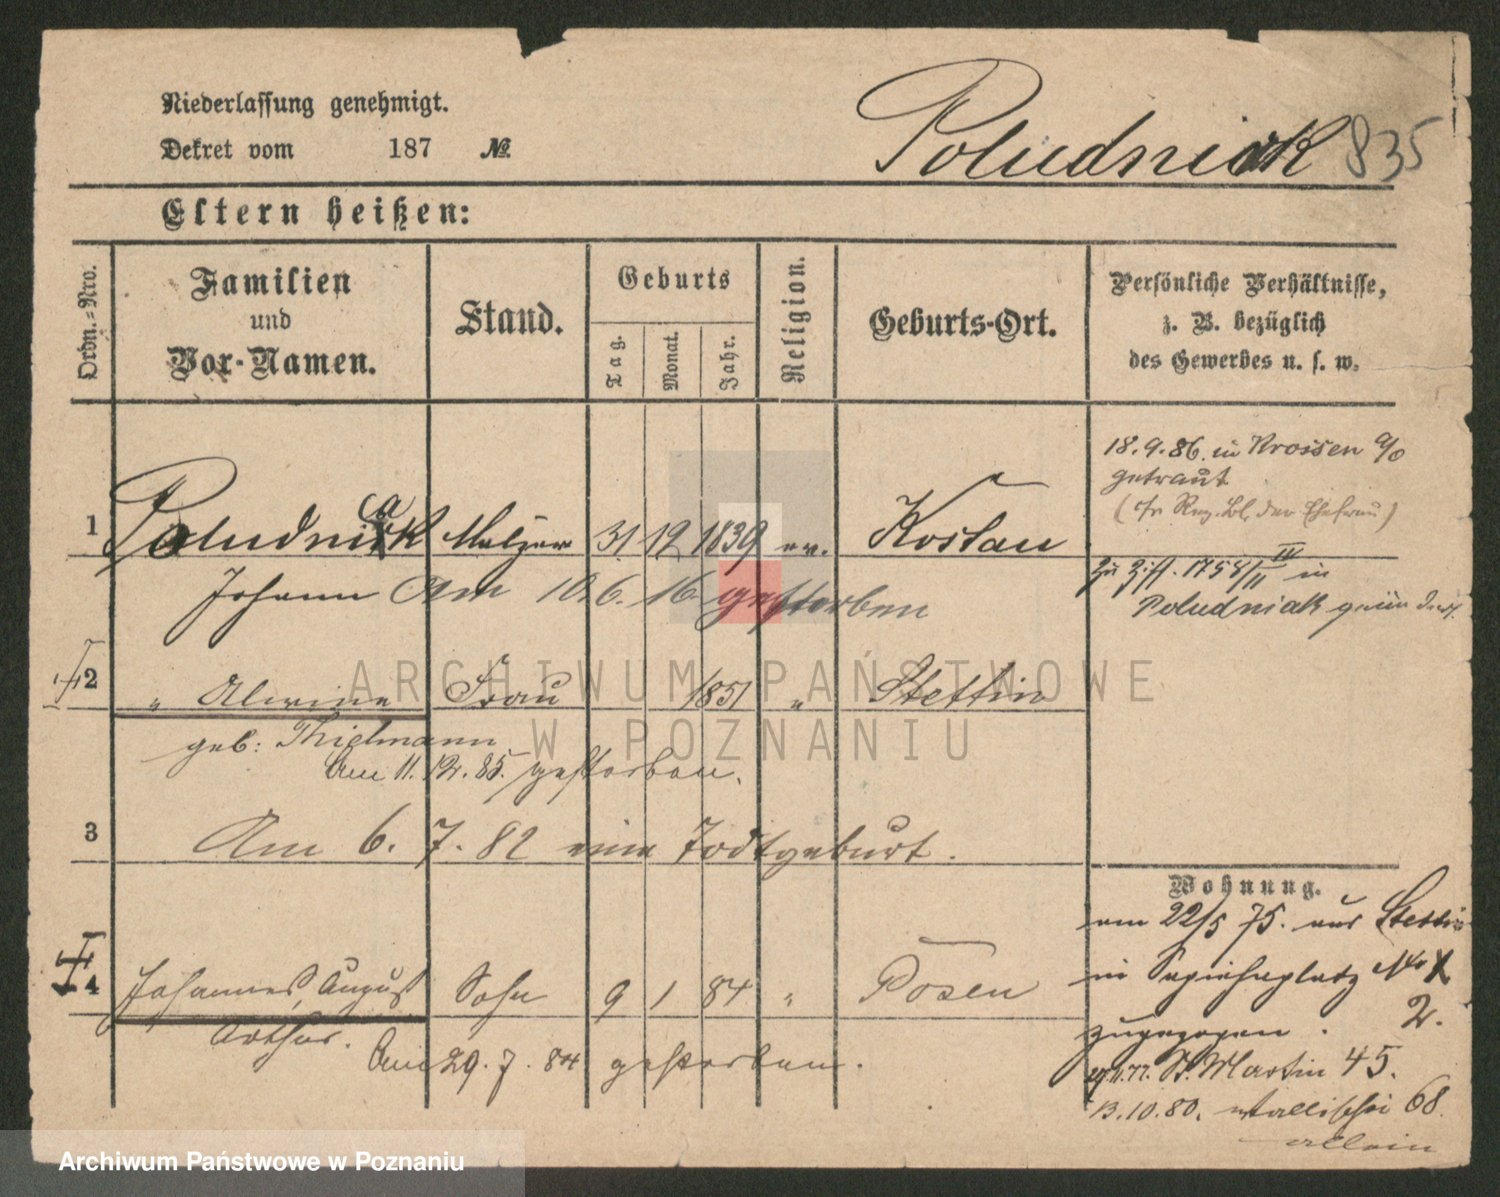 Niederlassung genehmigt.
Dekret vom 187 №
Poludniak 835
Eltern heißen:
Ordn.-Nro.
Familien
und
Vor-Namen.
Stand.
Geburts
Tag.
Monat.
Jahr.
Religion.
Geburts-Ort.
Persönliche Verhältnisse,
z. B. bezüglich
des Gewerbes u. s. w.
18.9.86. in Krossen a/o
getraut
(cfr Reg. Bl. der Ehefrau)
1 Poludniak Melzer 31 12 1839 ev. Kostau
Johann Am 10.6.16 gestorben
Zu Ziff. 1758/II IV in
Poludniak
2 " Alwine Frau 1851 " Stettin
geb: Thielmann
Am 11.12.85. gestorben.
3 Am 6.7.82 eine Todtgeburt.
Wohnung.
am 22/5 75. aus Stettin
in Sapiehaplatz No
2.
zugezogen.
4 Johannes, August Sohn 9 1 84 " Posen
Arthur.
Am 29.7.84 gestorben.
St. Martin 45.
13.10.80. Wallischei 68.
allein
ARCHIWUM PAŃSTWOWE
W POZNANIU
Archiwum Państwowe w Poznaniu